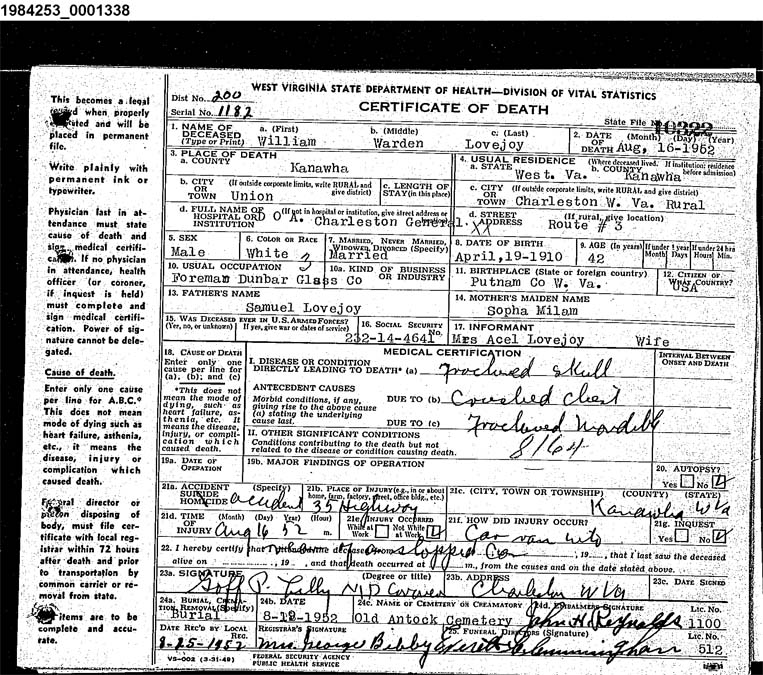 1984253_0001338
This becomes a legal
when properly
and will be
placed in permanent
file.
Write plainly with
permanent ink or
typewriter.
Physician last in at-
tendance must state
cause of death and
sign medical certifi-
If no physician
in attendance, health
officer (or coroner,
if inquest is held)
must complete and
sign medical certifi-
cation. Power of sig-
nature cannot be dele-
gated.
Cause of death.
Enter only one cause
per line for A.B.C.*
This does not mean
mode of dying such as
heart failure, asthenia,
etc., it means the
disease, injury or
complication which
caused death.
director or
disposing of
body, must file cer-
tificate with local reg-
istrar within 72 hours
after death and prior
to transportation by
common carrier or re-
moval from state.
items are to be
complete and accu-
rate.
WEST VIRGINIA STATE DEPARTMENT OF HEALTH—DIVISION OF VITAL STATISTICS
Dist No. 200
CERTIFICATE OF DEATH
Serial No. 1182
State File No. 10322
1. NAME OF DECEASED (Type or Print) a. (First) b. (Middle) c. (Last)
William Warden Lovejoy
2. DATE OF DEATH (Month) (Day) (Year)
Aug, 16-1952
3. PLACE OF DEATH
a. COUNTY
Kanawha
4. USUAL RESIDENCE (Where deceased lived. If institution: residence before admission)
a. STATE b. COUNTY
West. Va. Kanawha
b. CITY OR TOWN (If outside corporate limits, write RURAL and give district)
Union
c. LENGTH OF STAY (in this place)
c. CITY OR TOWN (If outside corporate limits, write RURAL and give district)
Charleston W. Va. Rural
d. FULL NAME OF HOSPITAL OR INSTITUTION (If not in hospital or institution, give street address or
D O A. Charleston General.
d. STREET ADDRESS (If rural, give location)
Route # 3
5. SEX
Male
6. COLOR OR RACE
White
7. MARRIED, NEVER MARRIED, WIDOWED, DIVORCED (Specify)
Married
8. DATE OF BIRTH
April,19-1910
9. AGE (In years)
42
If under 1 year Months Days
If under 24 hrs Hours Min.
10. USUAL OCCUPATION
Foreman Dunbar Glass Co
10a. KIND OF BUSINESS OR INDUSTRY
11. BIRTHPLACE (State or foreign country)
Putnam Co W. Va.
12. CITIZEN OF WHAT COUNTRY?
USA
13. FATHER'S NAME
Samuel Lovejoy
14. MOTHER'S MAIDEN NAME
Sopha Milam
15. WAS DECEASED EVER IN U.S. ARMED FORCES?
(Yes, no, or unknown) If yes, give war or dates of service)
16. SOCIAL SECURITY No.
232-14-4641
17. INFORMANT
Mrs Acel Lovejoy Wife
18. CAUSE OF DEATH
Enter only one cause per line for (a), (b), and (c)
*This does not mean the mode of dying, such as heart failure, asthenia, etc. It means the disease, injury, or complication which caused death.
MEDICAL CERTIFICATION
INTERVAL BETWEEN ONSET AND DEATH
I. DISEASE OR CONDITION DIRECTLY LEADING TO DEATH* (a) Fractured skull
ANTECEDENT CAUSES
Morbid conditions, if any, giving rise to the above cause (a) stating the underlying cause last.
DUE TO (b) Crushed chest
DUE TO (c) Fractured Mandible
II. OTHER SIGNIFICANT CONDITIONS
Conditions contributing to the death but not related to the disease or condition causing death.
8164
19a. DATE OF OPERATION
19b. MAJOR FINDINGS OF OPERATION
20. AUTOPSY?
Yes No
21a. ACCIDENT SUICIDE HOMICIDE (Specify)
accident
21b. PLACE OF INJURY (e.g., in or about home, farm, factory, street, office bldg., etc.)
35 Highway
21c. (CITY, TOWN OR TOWNSHIP) (COUNTY) (STATE)
Kanawha W Va
21d. TIME OF INJURY (Month) (Day) (Year) (Hour) m.
Aug 16 52
21e. INJURY OCCURRED
While at Work Not While at Work
21f. HOW DID INJURY OCCUR?
Car ran into
21g. INQUEST
Yes No
22. I hereby certify that I attended the deceased from stopped Car, 19, that I last saw the deceased
alive on , 19 , and that death occurred at m., from the causes and on the date stated above.
23a. SIGNATURE (Degree or title)
P. Lilly MD Coroner
23b. ADDRESS
Charleston W Va
23c. DATE SIGNED
24a. BURIAL, CREMATION, REMOVAL (Specify)
Burial
24b. DATE
8-18-1952
24c. NAME OF CEMETERY OR CREMATORY
Old Antock Cemetery
24d. EMBALMERS SIGNATURE
John H. Reynolds
LIC. NO.
1100
DATE REC'D BY LOCAL REG.
8-25-1952
REGISTRAR'S SIGNATURE
Mrs. George Bibby
25. FUNERAL DIRECTORS (Signature)
Cunningham
LIC. NO.
512
VS-002 (3-31-49)
FEDERAL SECURITY AGENCY
PUBLIC HEALTH SERVICE